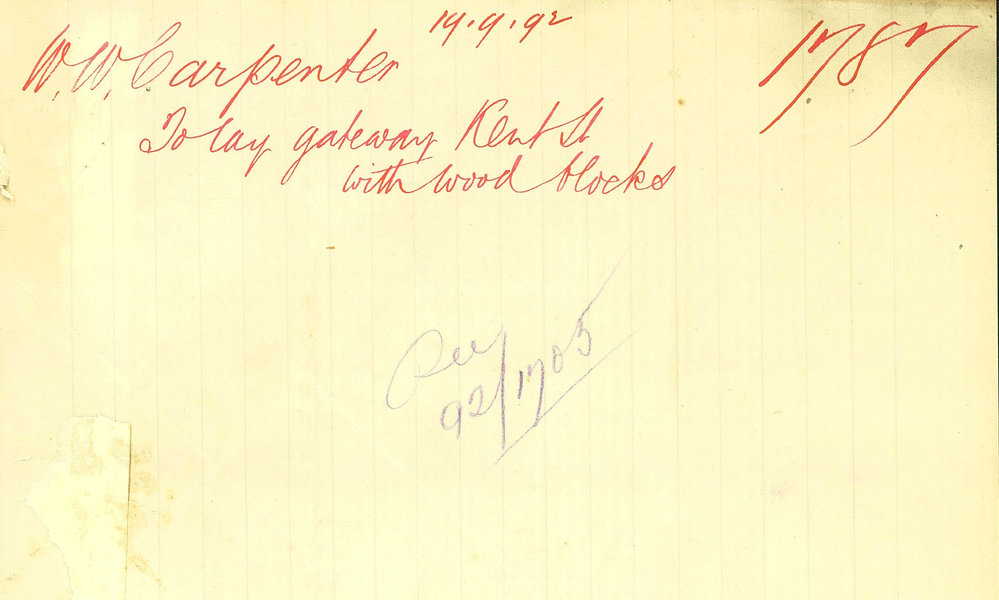 19.9.92
W. W. Carpenter 1787
To lay gateway Kent St
with wood blocks
See
92/1705